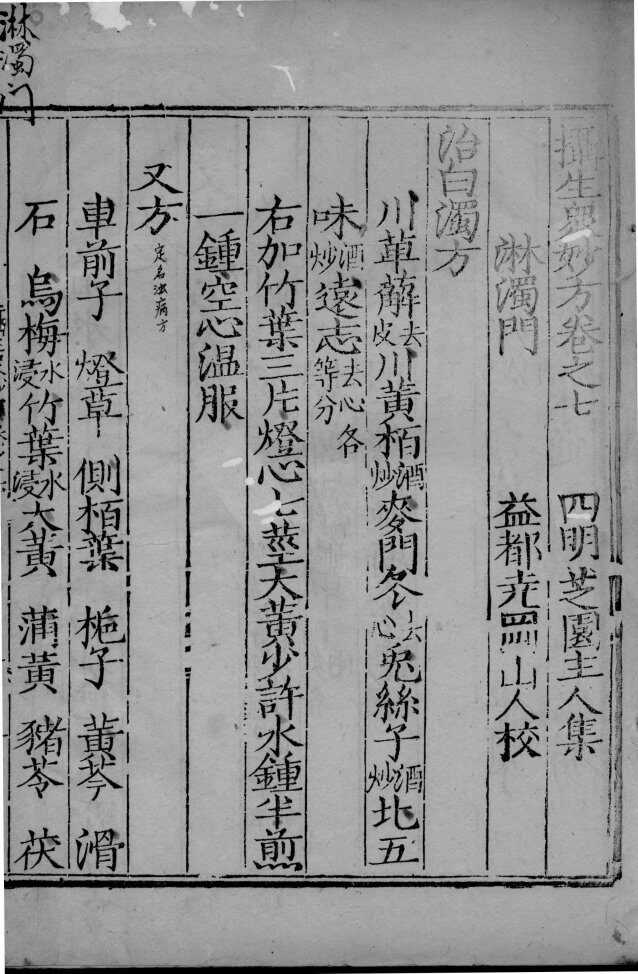 攝生眾妙方卷之七　四明芝園主人集
淋濁門　益都山人校
治白濁方
川萆薢去皮川黃栢酒炒麥門冬去心兎絲子酒炒北五
味酒炒遠志去心各等分
右加竹葉三片燈心七莖大黃少許水鍾半煎
一鍾空心温服
又方定名濁病方
車前子　燈草　側栢葉　梔子　黃芩　滑
石　烏梅水浸竹葉水浸大黃　蒲黃　豬苓　茯
淋濁门